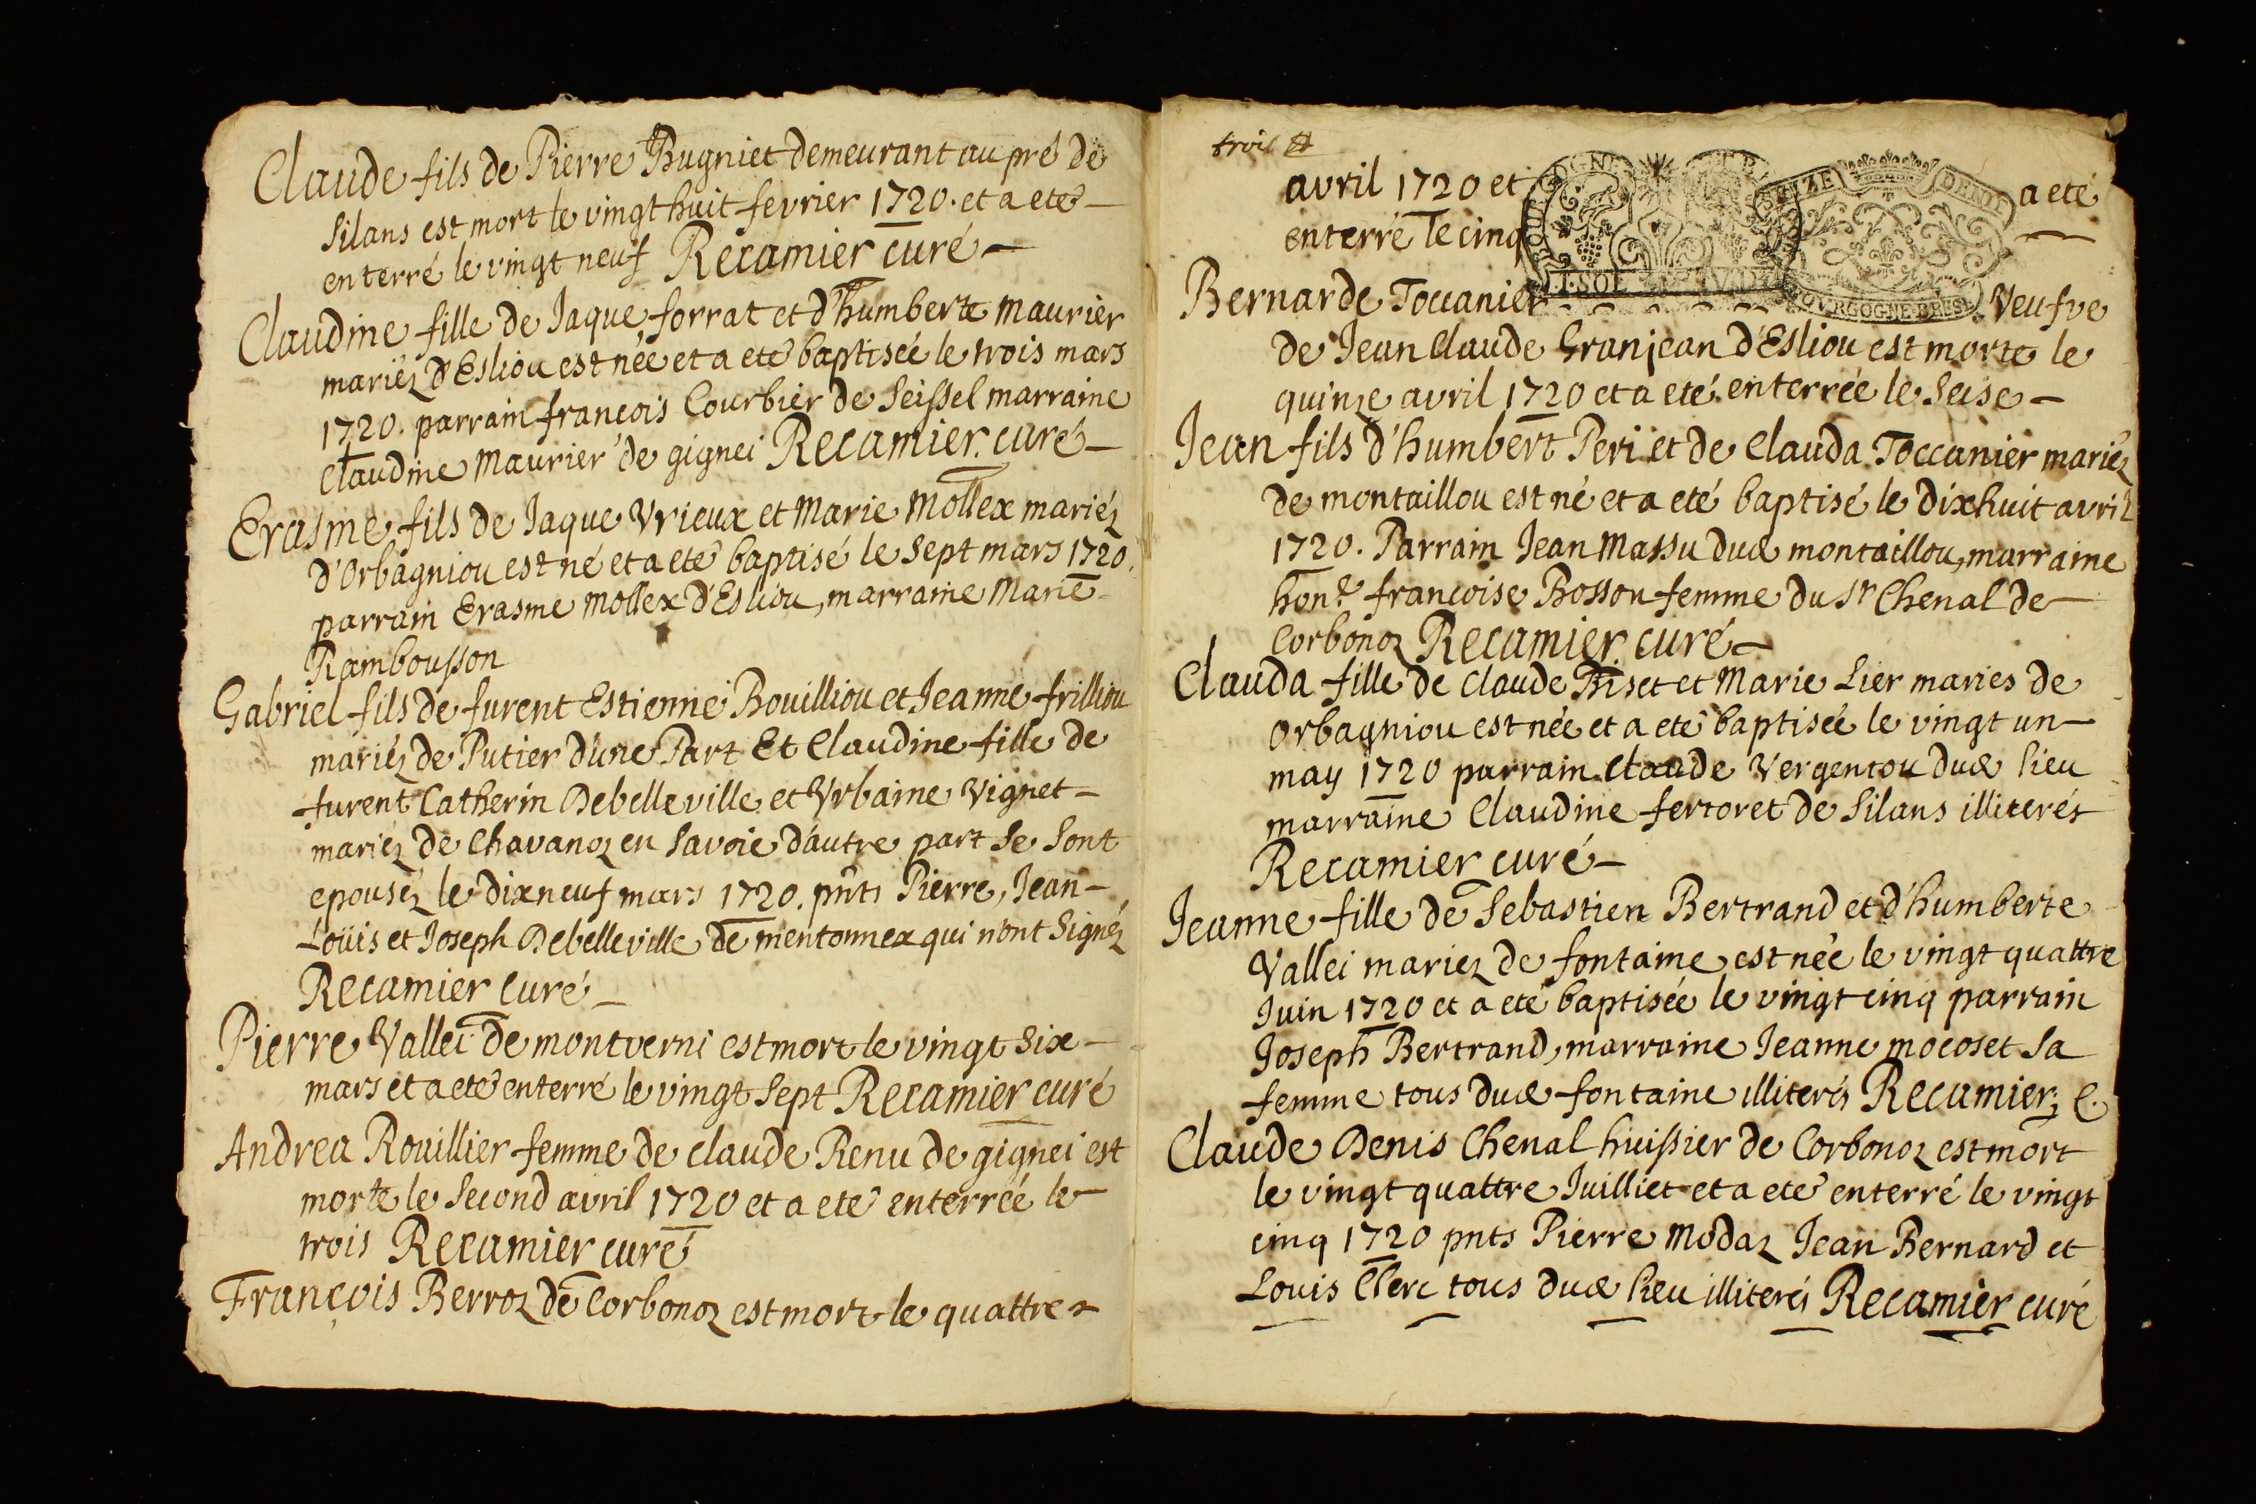 Claude fils de Pierre Bugniet demeurant au pré de
Silans est mort le vingt huit fevrier 1720. et a eté
enterré le vingt neuf Recamier curé
Claudine fille de Jaque forrat et d'humberte Maurier
mariéz d'Esliou est née et a eté baptisée le trois mars
1720. parrain francois Courbier de Seissel marraine
Claudine Maurier de gignei Recamier curé
Erasme fils de Jaque Vrieux et Marie Mollex mariéz
d'Orbagniou est né et a eté baptisé le sept mars 1720.
parrain Erasme Mollex d'Esliou, marraine Marie
Rambousson
Gabriel fils de furent Estienne Bouilliou et Jeanne frilliou
mariéz de Putier d'une Part Et Claudine fille de
furent Catherin Debelleville et Vrbaine Vignet
mariéz de Chavanoz en Savoie d'autre part se sont
epouséz le dixneuf mars 1720. pnts Pierre, Jean
Loüis et Joseph Debelleville de mentonnex qui n'ont signéz
Recamier curé
Pierre Vallei de montverni est mort le vingt six
mars et a eté enterré le vingt sept Recamier curé
Andrea Rouillier femme de claude Renu de gignei est
morte le second avril 1720 et a eté enterréé le
trois Recamier curé
François Berroz de Corbonoz est mort le quattre
trois
avril 1720 et a eté
enterré le cinq
Bernarde Toccanier Veufve
de Jean Claude Granjean d'Esliou est morte le
quinze avril 1720 et a eté enterrée le seise
Jean fils d'humbert Peri et de Clauda Toccanier mariéz
de montaillou est né et a eté baptisé le dixhuit avril
1720. Parrain Jean Massu dud montaillou, marraine
hon.e francoise Bosson femme du Sr Chenal de
Corbonoz Recamier curé
Clauda fille de claude Biset et Marie Lier maries de
Orbagniou est née et a eté baptisée le vingt un
may 1720 parrain claude Vergentou dud lieu
marraine Claudine fertoret de Silans illiterés
Recamier curé
Jeanne fille de Sebastien Bertrand et d'humberte
Vallei mariez de fontaine est née le vingt quattre
Juin 1720 et a eté baptisée le vingt cinq parrain
Joseph Bertrand, marraine Jeanne mocoset sa
femme tous dud fontaine illiterés Recamier, C.
Claude Denis Chenal huissier de Corbonoz est mort
le vingt quattre Juilliet et a eté enterré le vingt
cinq 1720 pnts Pierre Modaz Jean Bernard et
Louis Clerc tous dud lieu illiterés Recamier curé